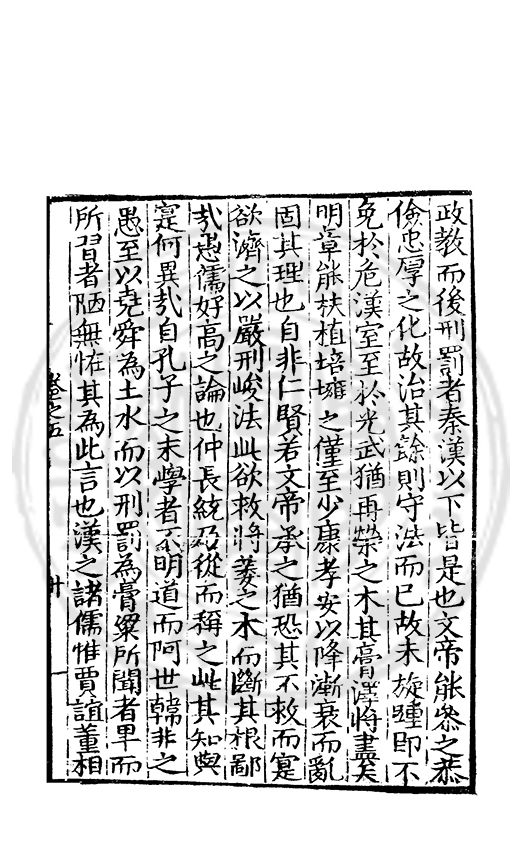 政教而後刑罰者秦漢以下皆是也文帝能參之恭
儉忠厚之化故治其餘則守法而已故未旋踵即不
免於危漢室至於光武猶再榮之木其膏澤將盡矣
明章能扶植培壅之僅至少康孝安以降漸衰而亂
固其理也自非仁賢若文帝承之猶恐其不救而寔
欲濟之以嚴刑峻法此欲救將萎之木而斷其根鄙
哉愚儒好高之論也仲長統乃從而稱之此其知與
寔何異哉自孔子之末學者不明道而阿世韓非之
愚至以堯舜為土水而以刑罰為膏粱所聞者卑而
所習者陋無恠其為此言也漢之諸儒惟賈誼董相
卷之五
廿一